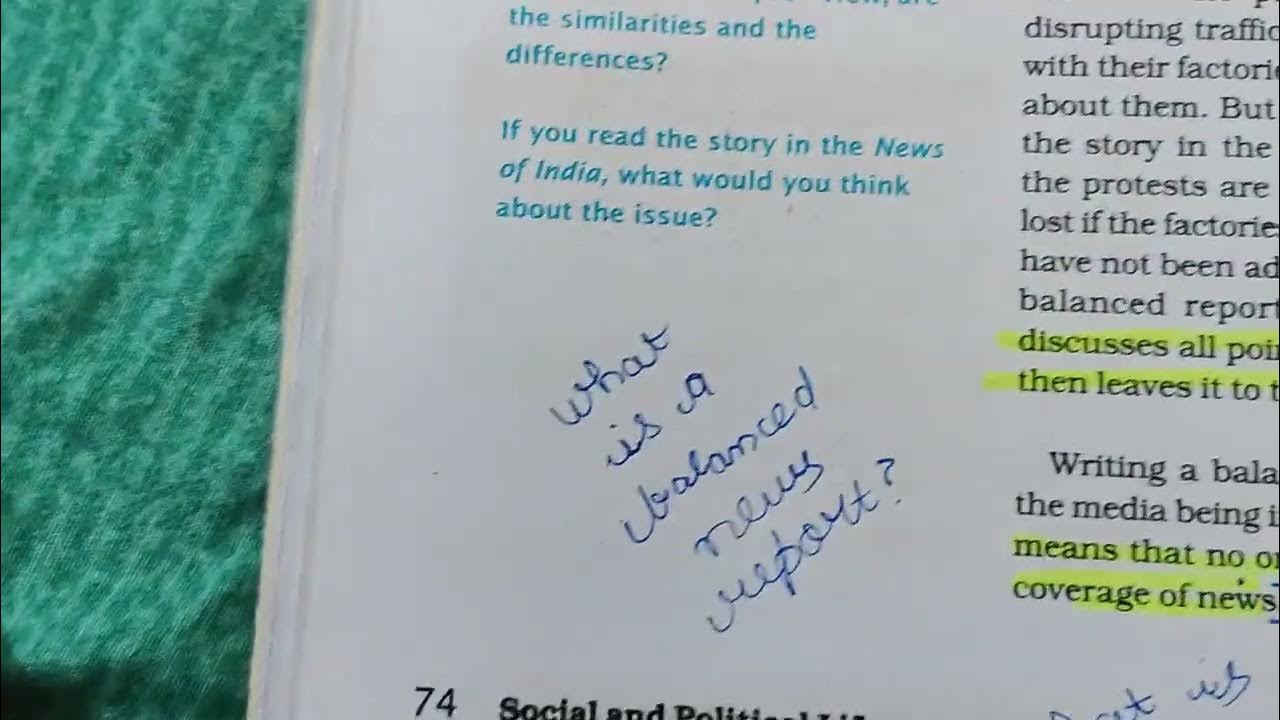 the similarities and the
differences?
If you read the story in the News
of India, what would you think
about the issue?
what
is a
balanced
news
report?
74 Social and Political
disrupting traffic
with their factorie
about them. But
the story in the
the protests are
lost if the factorie
have not been ad
balanced report
discusses all poi
then leaves it to t
Writing a bala
the media being i
means that no o
coverage of news